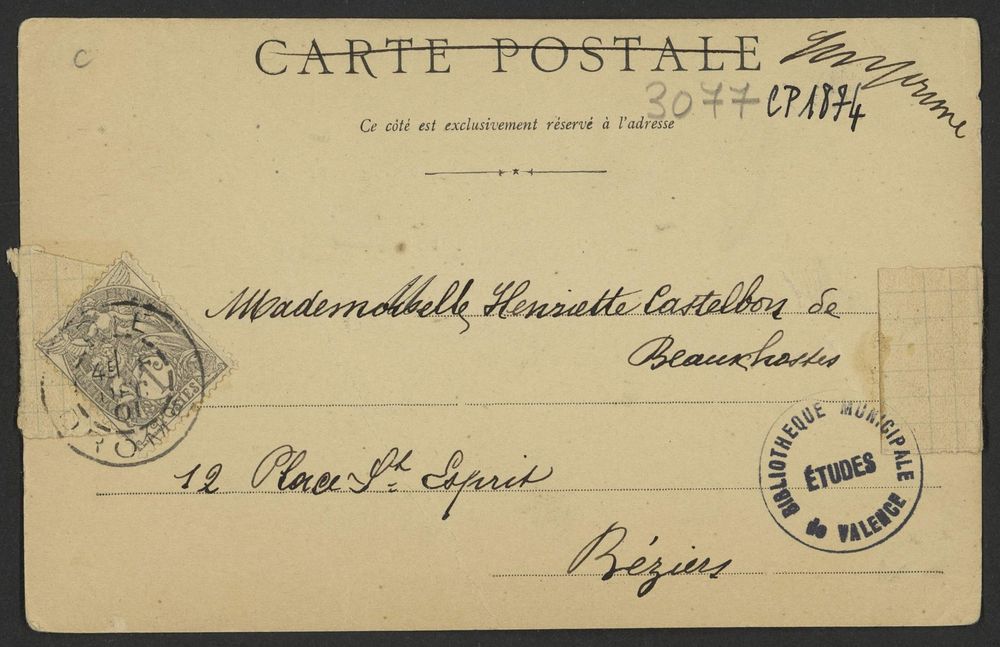 C
CARTE POSTALE
Imprimé
3077 CP1874
Ce côté est exclusivement réservé à l'adresse
Mademoiselle Henriette Castelbon de
Beauxhostes
12 Place St. Esprit
Béziers
BIBLIOTHEQUE MUNICIPALE
ÉTUDES
de VALENCE
01
DRÔME